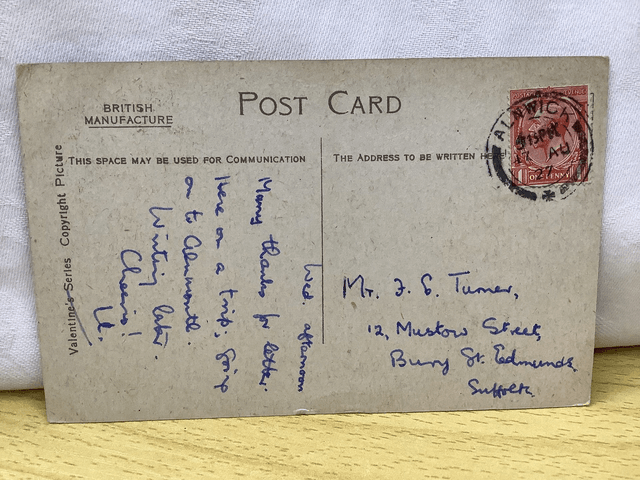 BRITISH
MANUFACTURE
POST CARD
THIS SPACE MAY BE USED FOR COMMUNICATION
THE ADDRESS TO BE WRITTEN HE
Valentine's Series Copyright Picture
ALNWICK
15 PM
17 AU
27
POSTAGE REVENUE
1 ONE PENNY
Wed. afternoon
Many thanks for letter.
Here on a trip, going
on to Alnmouth.
Writing later.
Cheerio!
Mr. F. S. Turner,
12, Mustow Street,
Bury St. Edmunds,
Suffolk